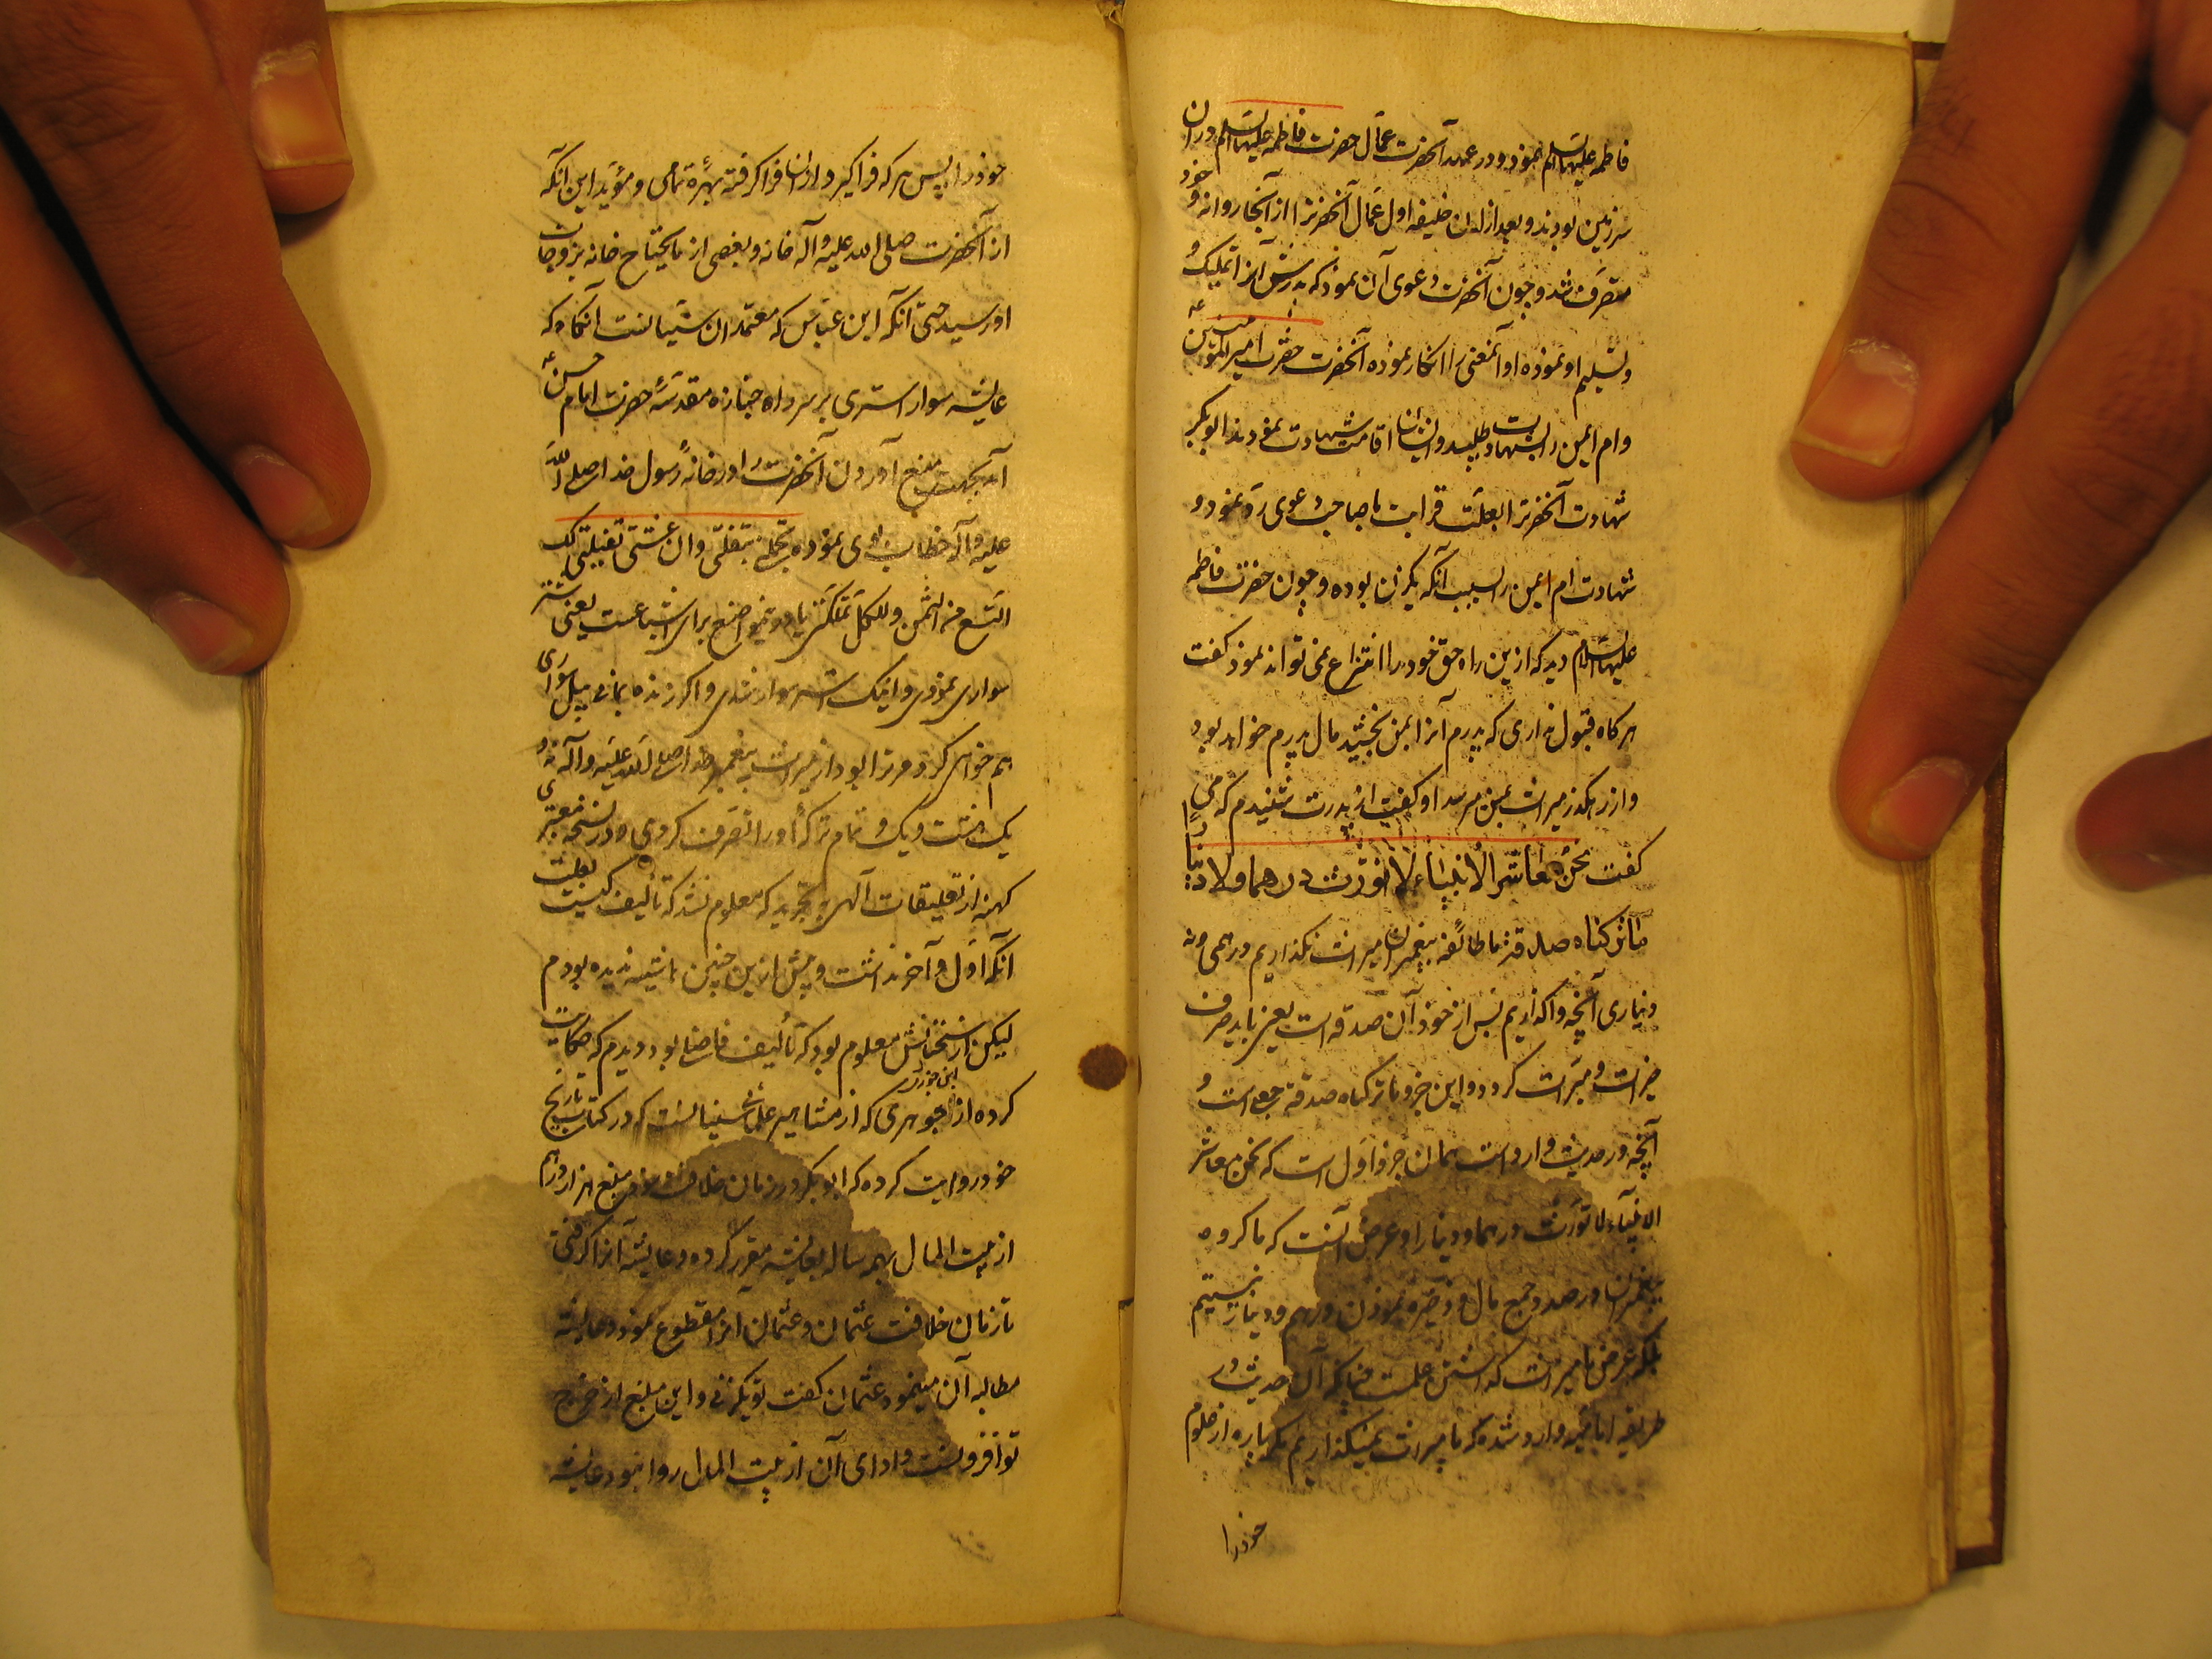 فاطمه علیها السلم نمود و در عهد آنحضرت عمال حضرت فاطمه علیها السلم در ان
سرزمین بودند و بعد از ان خلیفه اول عمال آنحضرترا از آنجا روانه و خود
متصرف شد و چون آنحضرت دعوی آن نمود که پدرش آنرا تملیک و
تسلیم او نموده او آنمعنی را انکار نموده آنحضرت حضرت امیر المومنین ع
و ام ایمن را بشهادت طلبید و ایشان اقامت شهادت نمودند ابوبکر
شهادت آنحضرترا بعلت قرابت با صاحب دعوی رد نمود و
شهادت ام ایمن را بسبب آنکه یکزن بوده و چون حضرت فاطمه
علیها السلام دید که ازین راه حق خود را انتزاع نمی تواند نمود گفت
هر کاه قبول نداری که پدرم آنرا بمن بخشید مال پدرم خواهد بود
و از رهکذر میراث بمن میرسد او گفت از پدرت شنیدم که می
گفت نحن معاشر الانبیاء لا نورث درهما ولا دینارا
ماترکناه صدقة ما طائفه پیغمبران میراث نکذاریم درهمی و نه
دیناری آنچه واکذاریم پس از خود آن صدقه است یعنی باید صرف
خیرات و مبرات کردد و این جزو ماترکناه صدقة جمعی است و
آنچه در حدیث وارد است همان جزو اول است که نحن معاشر
الانبیاء لا نورث درهما و دینارا و غرض آنست که ما کروه
پیغمبران در صدد جمع مال و ذخیره نمودن درهم و دینار نیستیم
بلکه غرض ما میراث کذاشتن علمست چنانکه آن حدیث در
طریقه امامیه وارد شده که ما میراث نمیکذاریم مکر پاره از علوم
خود را
خود را پس هر که فرا کیرد از ان فرا کرفته بهرۀ تمامی و مؤید این آنکه
از آنحضرت صلی الله علیه و آله خانه و بعضی از مایحتاج خانه بزوجات
او رسید حتی آنکه ابن عباس که معتمد ان سنیانست آنکاه که
عایشه سوار استری بر سر راه جنازه مقدسۀ حضرت امام حسن ع
آمد بجهت منع آوردن آنحضرت را در خانۀ رسول خدا صلی الله
علیه و آله خطاب بوی نموده تجملت تبغلت و ان عشت تفیلت لک
التسع من الثمن و للکل تملکت یعنی شتر
سواری نمودی و اینک استر سوار شدی و اکر زنده بمانی پیل سواری
هم خواهی کرد و مر ترا بود از میراث پیغمبر خدا صلی الله علیه و آله نه
یک هشت و یک و تمام ترکۀ او را تصرف کردی و در نسخه معتبری
کهنه از تعلیقات آلهی تجرید که معلوم نشد که تألیف کیست بعلت
آنکه اول و آخر نداشت و پیش ازین چنین حاشیه ندیده بودم
لیکن از سخنانش معلوم بود که تألیف فاضلی بود دیدم که حکایت
کرده از ابن جوزی جوهری که از مشاهیر علمای سنیانست که در کتاب تاریخ
خود روایت کرده که ابوبکر در زمان خلافت خود مبلغ هزار درهم
از بیت المال بهر ساله بعایشه مقرر کرده و عایشه آنرا کرفتی
تا زمان خلافت عثمان و عثمان آنرا مقطوع نمود و عایشه
مطالبه آن مینمود عثمان گفت تو یکزنی و این مبلغ از خرج
تو افزونست و ادای آن از بیت المال روا نبود عایشه